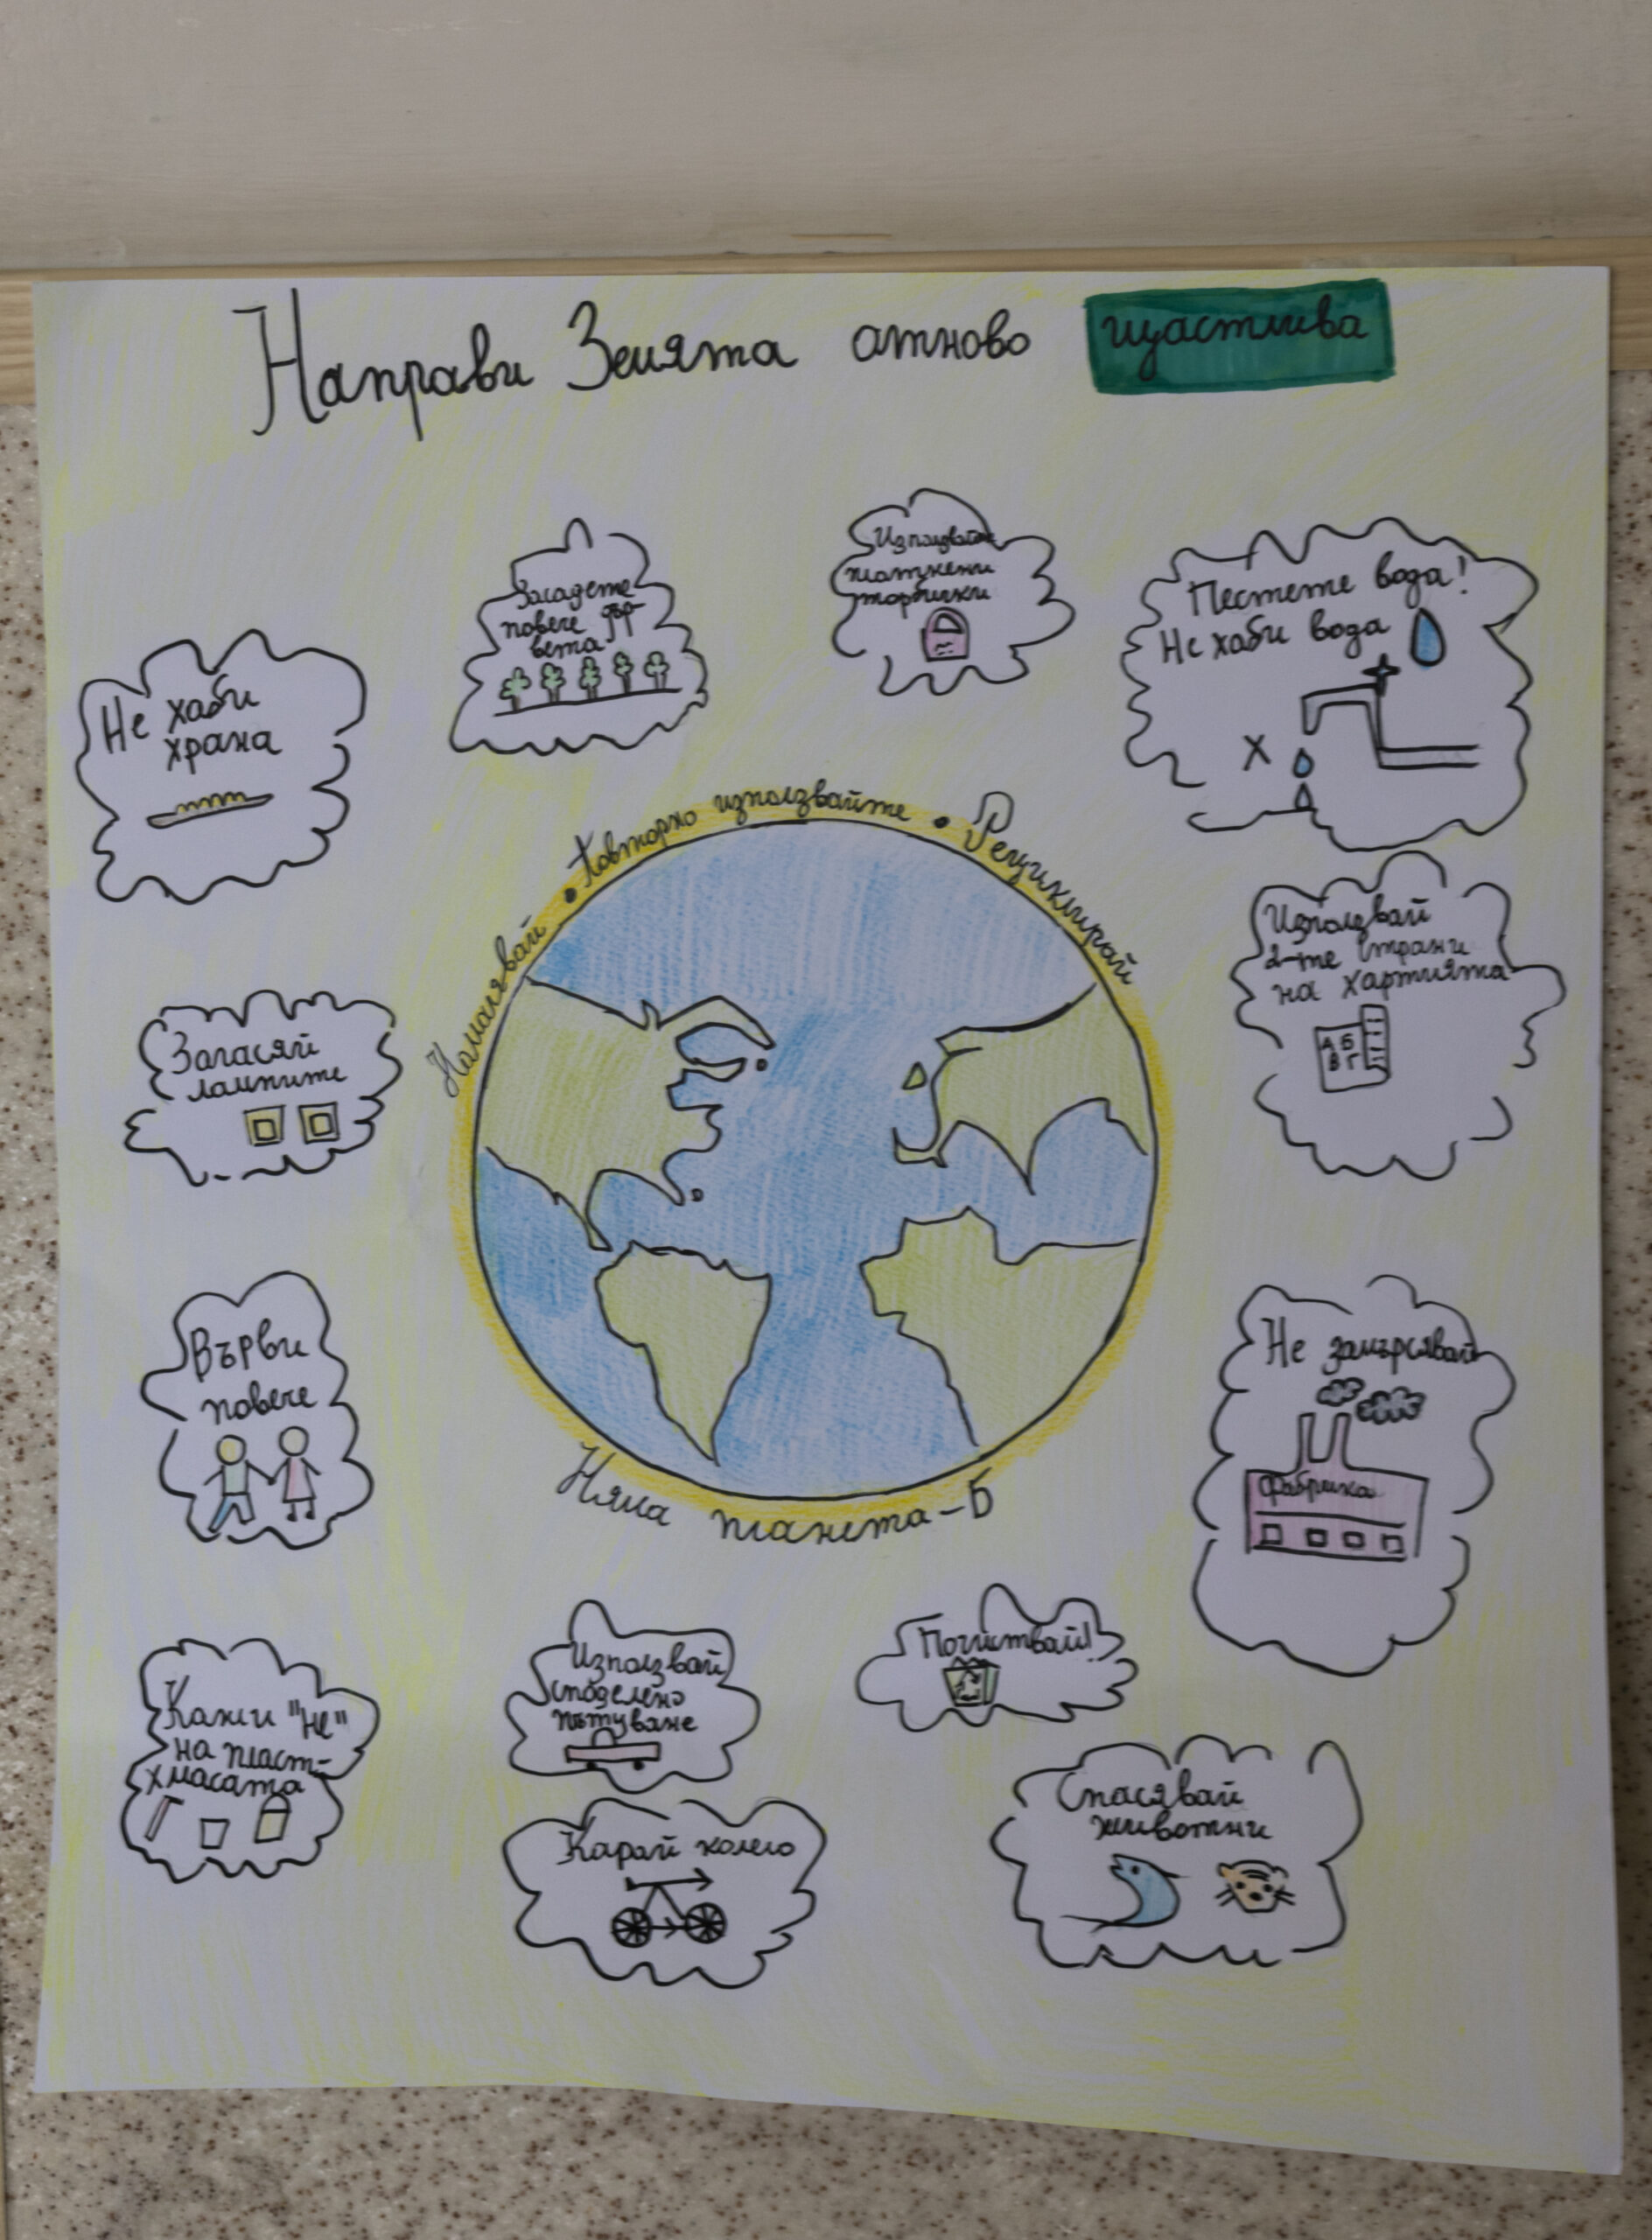 Направи Земята отново щастлива
Засадете
повече дър-
вета
Използвайте
платнени
торбички
Пестете вода!
Не хаби вода
X
Не хаби
храна
Намалявай • Повторно използвайте • Рециклирай
Използвай
2-те страни
на хартията
А Б
В Г
Загасяй
лампите
Върви
повече
Не замърсявай
Фабрика
Няма планета-Б
Кажи "Не"
на пласт-
масата
Използвай
споделено
пътуване
Почиствай!
Карай колело
Спасявай
животни